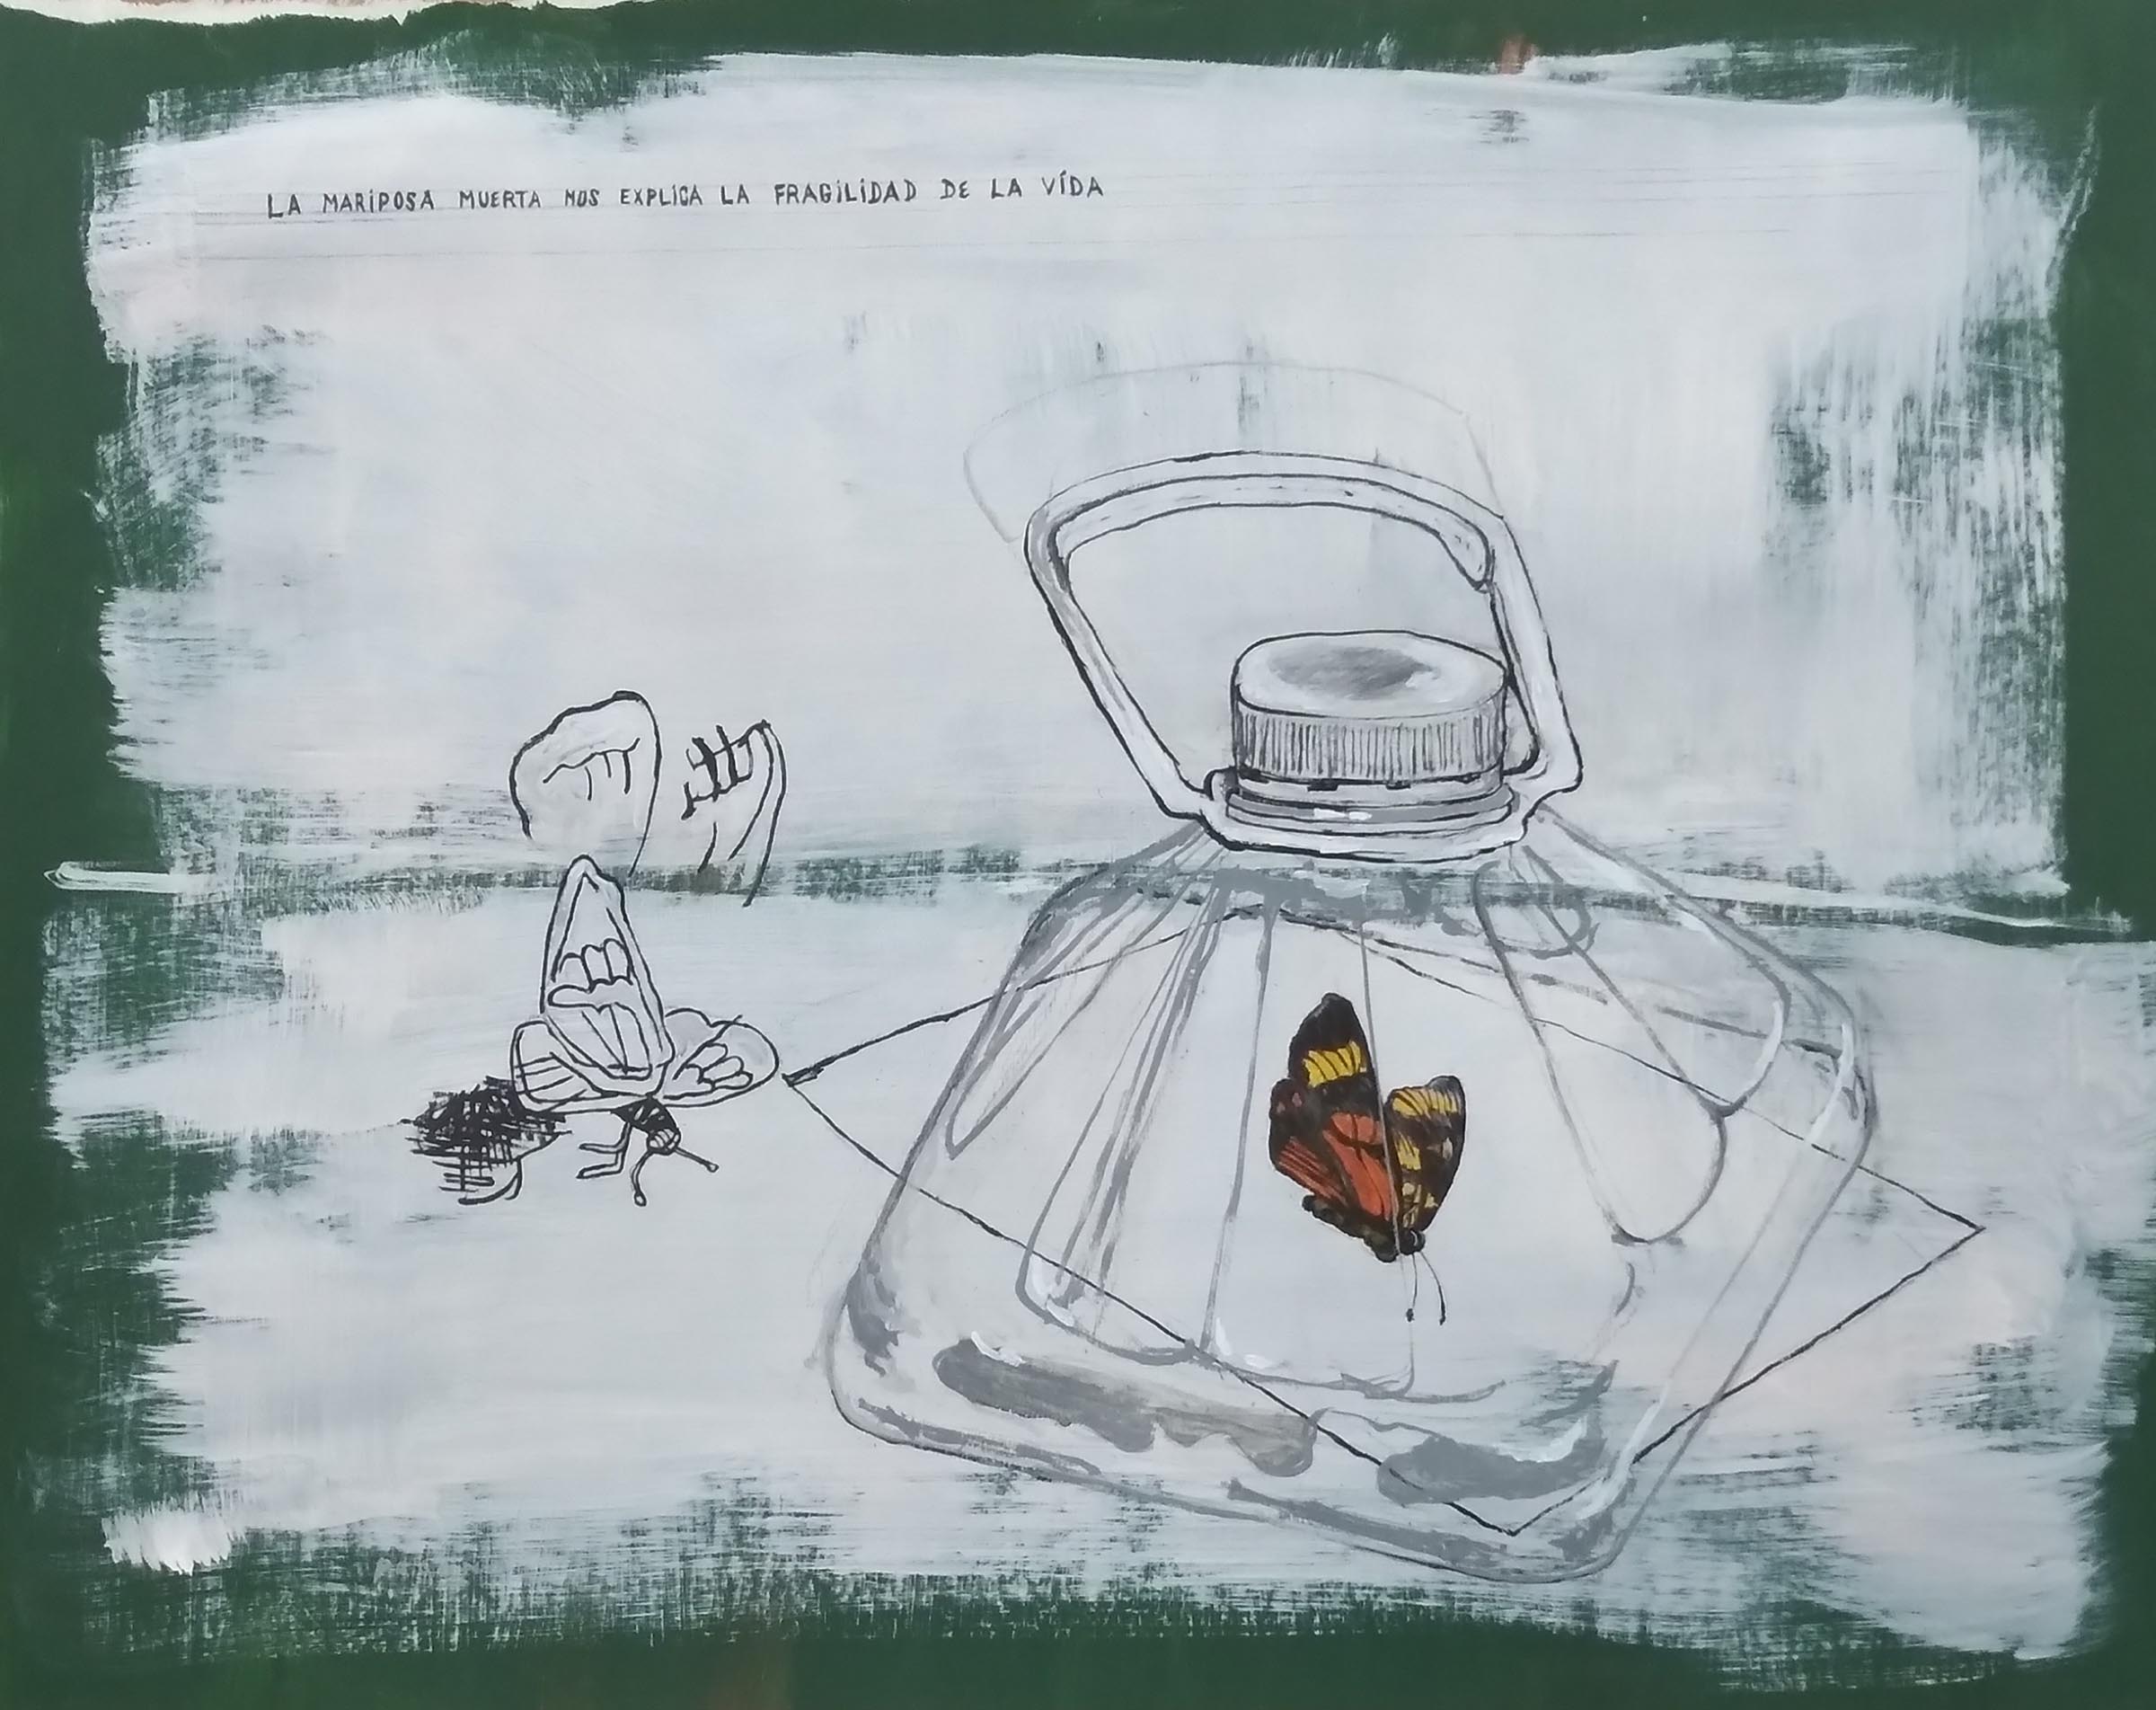 LA MARIPOSA MUERTA NOS EXPLICA LA FRAGILIDAD DE LA VÍDA